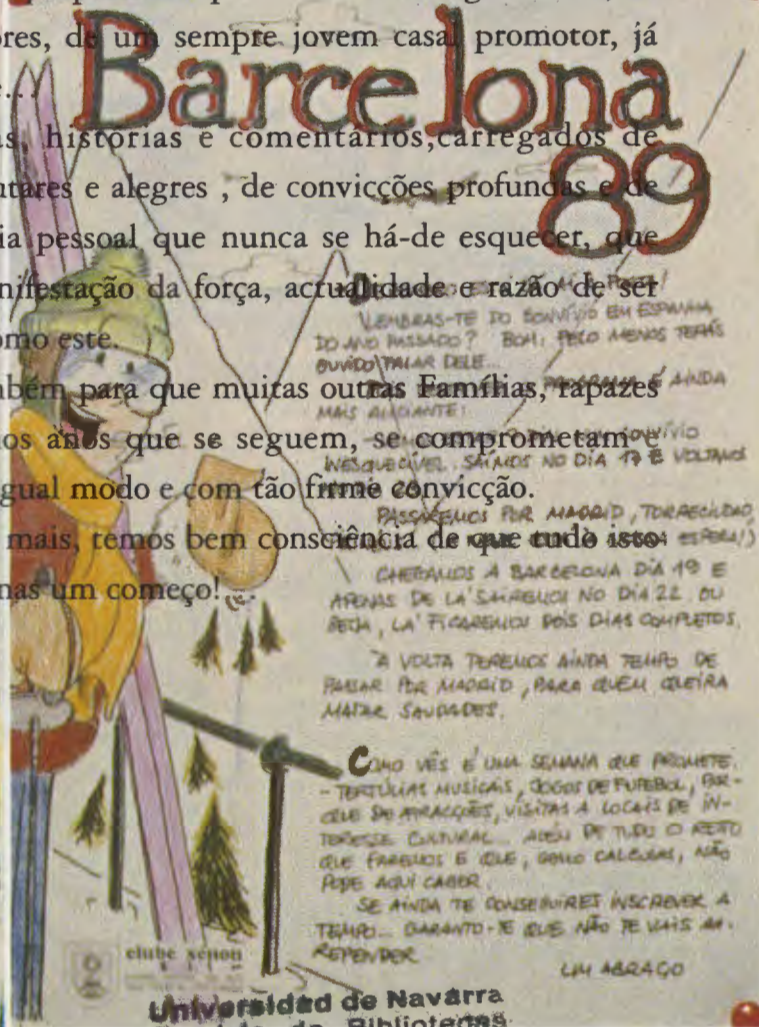 Barcelona
89
res, de um sempre jovem casal promotor, já
s, histórias e comentários,carregados de
ntares e alegres , de convicções profundas e de
ia pessoal que nunca se há-de esquecer, que
nifestação da força, actualidade e razão de ser
omo este.
bém para que muitas outras Famílias, rapazes
os anos que se seguem, se comprometam e
gual modo e com tão firme convicção.
mais, temos bem consciência de que tudo isto
nas um começo!
LEMBRAS-TE DO CONVÍVIO EM ESPANHA
DO ANO PASSADO? BOM, PELO MENOS TERÁS
OUVIDO FALAR DELE...
É AINDA
MAIS ALICIANTE!
CONVÍVIO
INESQUECÍVEL. SAÍMOS NO DIA 17 E VOLTAMOS
PASSAREMOS POR MADRID, TORRECIUDAD,
ESPERA!)
CHEGAMOS A BARCELONA DIA 19 E
APENAS DE LÁ SAIREMOS NO DIA 22. OU
SEJA, LÁ FICAREMOS DOIS DIAS COMPLETOS.
À VOLTA TEREMOS AINDA TEMPO DE
PASSAR POR MADRID, PARA QUEM QUEIRA
MATAR SAUDADES.
COMO VÊS É UMA SEMANA QUE PROMETE.
- TERTÚLIAS MUSICAIS, JOGOS DE FUTEBOL, PAR-
QUE DE ATRACÇÕES, VISITAS A LOCAIS DE IN-
TERESSE CULTURAL... ALÉM DE TUDO O RESTO
QUE FAREMOS E QUE, COMO CALCULAS, NÃO
PODE AQUI CABER.
SE AINDA TE CONSEGUIRES INSCREVER A
TEMPO... GARANTO-TE QUE NÃO TE VAIS AR-
REPENDER
UM ABRAÇO
clube xenon
Universidad de Navarra
de Bibliotecas